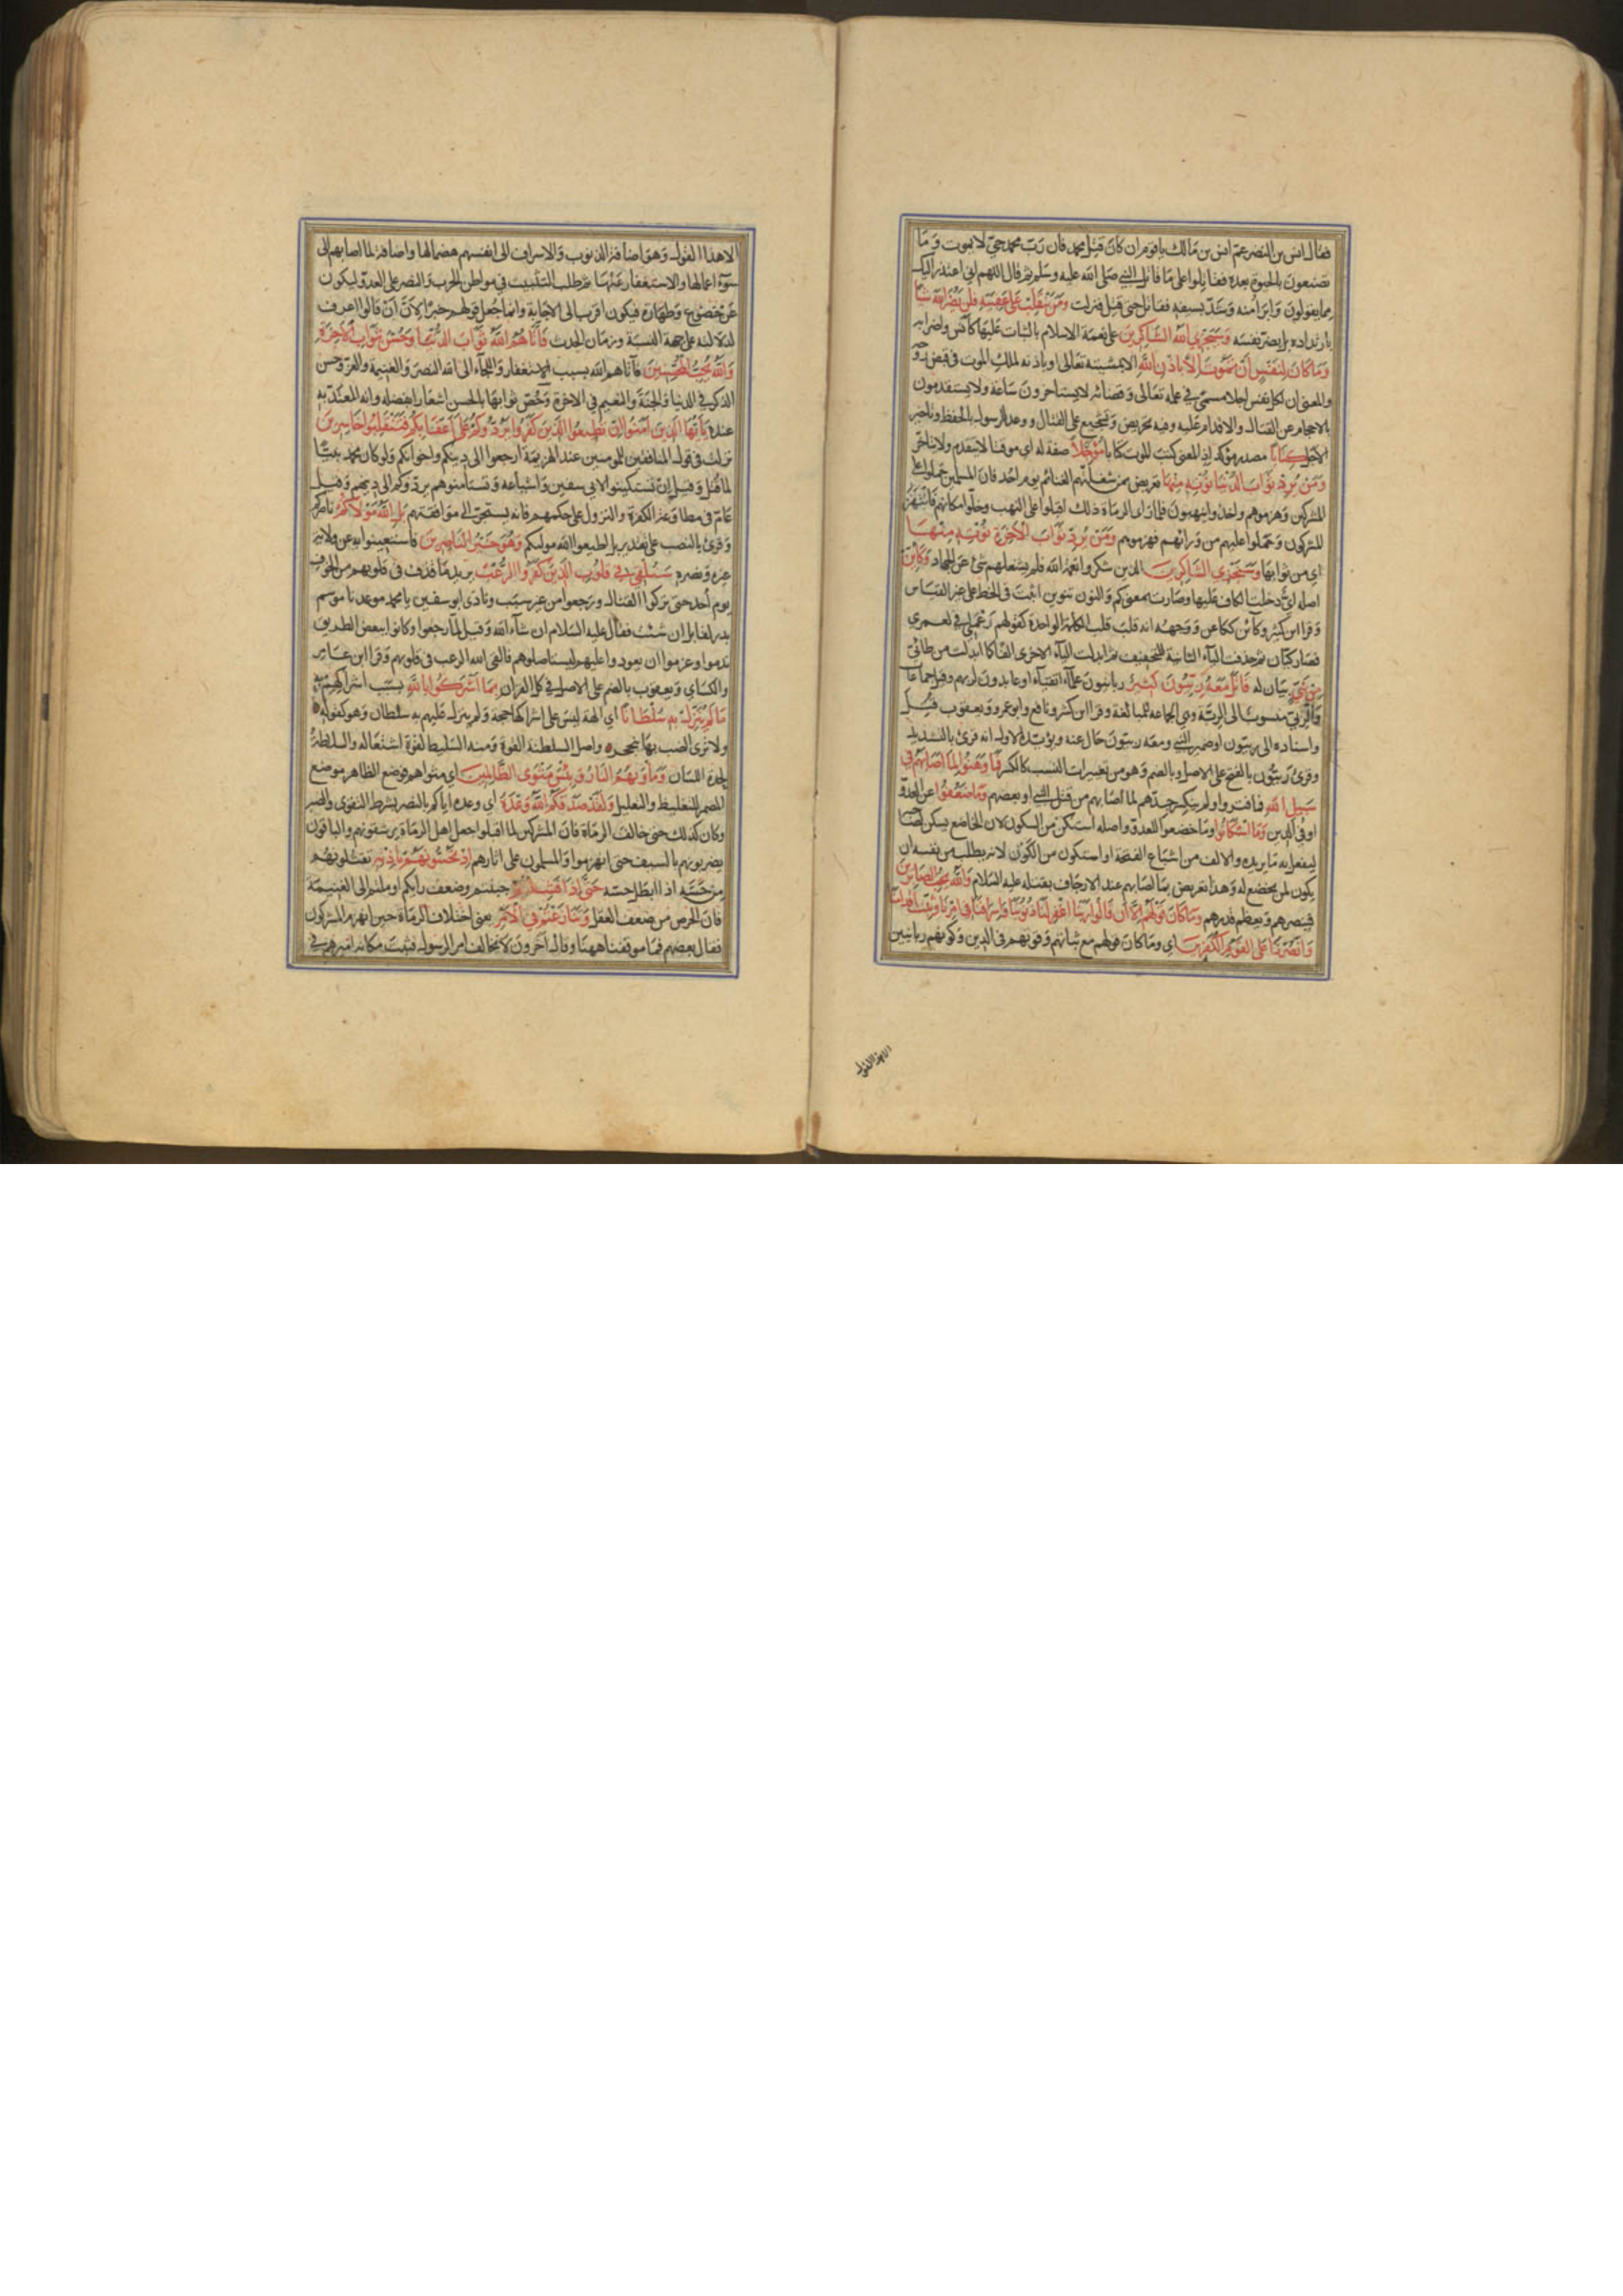 فقال انس بن النضر عم انس بن مالك يا قوم ان كان قتل محمد فان رب محمد حي لا يموت وما
تصنعون بالحيوة بعده فقاتلوا على ما قاتل النبي صلى الله عليه وسلم ثم قال اللهم اني اعتذر اليك
مما يقولون وابرأ منه وشد بسيفه فقاتل حتى قتل فنزلت ومن ينقلب على عقبيه فلن يضر الله شيأ
بارتداده بل يضر نفسه وسيجزي الله الشاكرين على نعمة الاسلام بالثبات عليها كأنس واضرابه
وما كان لنفس أن تموت الا باذن الله الا بمشيئته تعالى او باذنه لملك الموت في قبض روحه
والمعنى ان لكل نفس اجلا مسمى في علمه تعالى وقضائه لا يستاخرون ساعة ولا يستقدمون
بالاحجام عن القتال والاقدام عليه وفيه تحريض وتشجيع على القتال ووعد الرسول بالحفظ وتاخير
الاجل كتابا مصدر مؤكد اذ المعنى كتب الموت كتابا مؤجلا صفة له اي موقتا لا يتقدم ولا يتاخر
ومن يرد ثواب الدنيا نؤته منها تعريض بمن شغلتهم الغنائم يوم احد فان المسلمين حملوا على
المشركين وهزموهم واخذوا ينهبون فلما راى الرماة ذلك اقبلوا على النهب وخلوا مكانهم فانتهز
المشركون وحملوا عليهم من ورائهم فهزموهم ومن يرد ثواب الاخرة نؤته منها
اي من ثوابها وسنجزي الشاكرين الذين شكروا نعمة الله فلم يشغلهم شئ عن الجهاد وكاين
اصله اي دخلت الكاف عليها وصارت بمعنى كم والنون تنوين اثبت في الخط على غير القياس
وقرا ابن كثير وكائن ككاعن ووجهه انه قلب قلب الكلمة الواحدة كقولهم رعملي في لعمري
فصار كيأن ثم حذفت الياء الثانية للتخفيف ثم ابدلت الياء الاخرى الفا كما ابدلت من طائي
من نبي بيان له قاتل معه ربيون كثير ربانيون علماء اتقياء او عابدون لربهم وقيل جماعات
والربي منسوب الى الربة وهي الجماعة للمبالغة وقرا ابن كثير ونافع وابو عمرو ويعقوب قتل
واسناده الى ربيون او ضمير النبي ومعه ربيون حال عنه ويؤيد الاول انه قرئ بالتشديد
وقرئ ربيون بالفتح على الاصل وبالضم وهو من تغييرات النسب كالكسر فما وهنوا لما اصابهم في
سبيل الله فما فتروا ولم ينكسر جدهم لما اصابهم من قتل النبي او بعضهم وما ضعفوا عن العدو
او في الدين وما استكانوا وما خضعوا للعدو واصله استكن من السكون لان الخاضع يسكن لصاحبه
ليفعل به ما يريده والالف من اشباع الفتحة او استكون من الكون لانه يطلب من نفسه ان
يكون لمن يخضع له وهذا تعريض بما اصابهم عند الارجاف بقتله عليه السلام والله يحب الصابرين
فينصرهم ويعظم قدرهم وما كان قولهم الا ان قالوا ربنا اغفر لنا ذنوبنا واسرافنا في امرنا وثبت اقدامنا
وانصرنا على القوم الكفرين اي وما كان قولهم مع ثباتهم وقوتهم في الدين وكونهم ربانيين
الا هذا القول
الا هذا القول وهو اضافة الذنوب والاسراف الى انفسهم هضما لها واضافة لما اصابهم الى
سوء اعمالها والاستغفار عنها ثم طلب التثبيت في مواطن الحرب والنصر على العدو ليكون
عن خضوع وطهارة فيكون اقرب الى الاجابة وانما جعل قولهم خبرا لان أن قالوا اعرف
لدلالته على جهة النسبة وزمان الحدث فآتاهم الله ثواب الدنيا وحسن ثواب الاخرة
والله يحب المحسنين فآتاهم الله بسبب الاستغفار واللجاء الى الله النصر والغنيمة والعز وحسن
الذكر في الدنيا والجنة والنعيم في الاخرة وخص ثوابها بالحسن اشعارا بفضله وانه المعتد به
عنده يا ايها الذين امنوا ان تطيعوا الذين كفروا يردوكم على اعقابكم فتنقلبوا خاسرين
نزلت في قول المنافقين للمؤمنين عند الهزيمة ارجعوا الى دينكم واخوانكم ولو كان محمد نبيا
لما قتل وقيل ان تستكينوا لابي سفين واشياعه وتستأمنوهم يردوكم الى دينهم وقيل
عام في مطاوعة الكفرة والنزول على حكمهم فانه يستجر الى موافقتهم بل الله مولاكم ناصركم
وقرئ بالنصب على تقدير بل اطيعوا الله مولىكم وهو خير الناصرين فاستعينوا به عن ولاية
غيره ونصره سنلقي في قلوب الذين كفروا الرعب يريد ما قذف في قلوبهم من الخوف
يوم أحد حتى تركوا القتال ورجعوا من غير سبب ونادى ابو سفين يا محمد موعدنا موسم
بدر لقابل ان شئت فقال عليه السلام ان شاء الله وقيل لما رجعوا وكانوا ببعض الطريق
ندموا وعزموا ان يعودوا عليهم ليستاصلوهم فالقى الله الرعب في قلوبهم وقرا ابن عامر
والكساي ويعقوب بالضم على الاصل في كل القران بما اشركوا بالله بسبب اشراكهم به
ما لم ينزل به سلطانا اي الهة ليس على اشراكها حجة ولم ينزل عليهم به سلطان وهو كقوله
ولا ترى الضب بها ينجحر واصل السلطنة القوة ومنه السليط لقوة اشتعاله والسلاطة
لحدة اللسان ومأويهم النار وبئس مثوى الظالمين اي مثواهم فوضع الظاهر موضع
المضمر للتغليظ والتعليل ولقد صدقكم الله وعده اي وعده اياكم بالنصر بشرط التقوى والصبر
وكان كذلك حتى خالف الرماة فان المشركين لما اقبلوا جعل اهل الرماة يرشقونهم والباقون
يضربونهم بالسيف حتى انهزموا والمسلمون على اثارهم اذ تحسونهم باذنه تقتلونهم
من حسه اذا ابطل حسه حتى اذا فشلتم جبنتم وضعف رايكم او ملتم الى الغنيمة
فان الحرص من ضعف العقل وتنازعتم في الأمر يعني اختلاف الرماة حين انهزم المشركون
فقال بعضهم فما موقفنا ههنا وقال آخرون لا نخالف امر الرسول فثبت مكانه اميرهم في